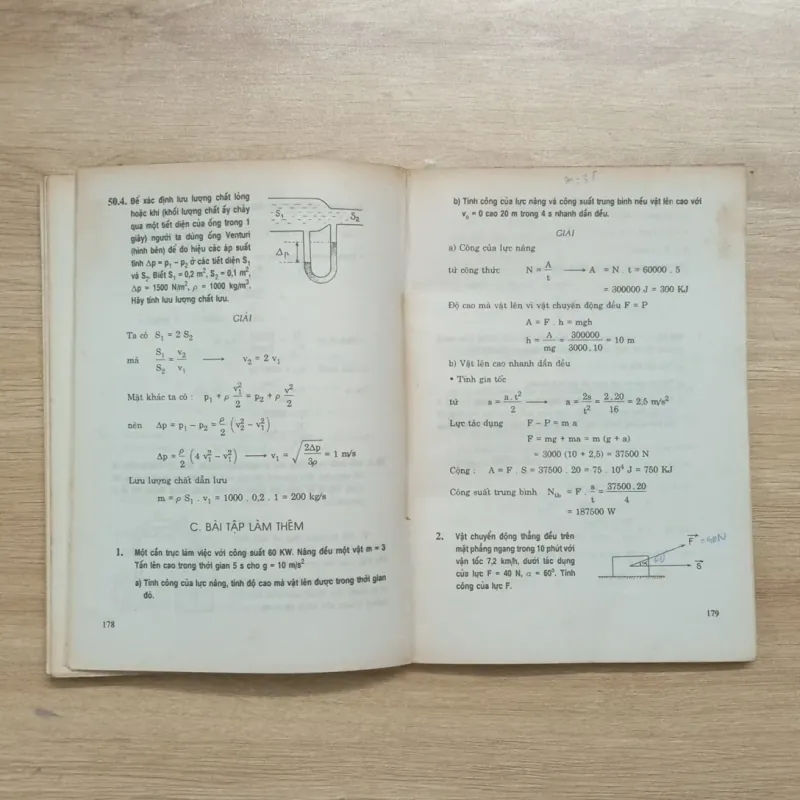 50.4. Để xác định lưu lượng chất lỏng
hoặc khí (khối lượng chất ấy chảy
qua một tiết diện của ống trong 1
giây) người ta dùng ống Venturi
(hình bên) để đo hiệu các áp suất
tĩnh Δp = p₁ – p₂ ở các tiết diện S₁
và S₂. Biết S₁ = 0,2 m², S₂ = 0,1 m²,
Δp = 1500 N/m², ρ = 1000 kg/m³.
Hãy tính lưu lượng chất lưu.
S₁ S₂
Δp
GIẢI
Ta có S₁ = 2 S₂
mà S₁/S₂ = v₂/v₁ ⟶ v₂ = 2 v₁
Mặt khác ta có : p₁ + ρ v₁²/2 = p₂ + ρ v²/2
nên Δp = p₁ – p₂ = ρ/2 (v₂² – v₁²)
Δp = ρ/2 (4 v₁² – v₁²) ⟶ v₁ = √(2Δp/3ρ) = 1 m/s
Lưu lượng chất dẫn lưu
m = ρ S₁ . v₁ = 1000 . 0,2 . 1 = 200 kg/s
C. BÀI TẬP LÀM THÊM
1. Một cần trục làm việc với công suất 60 KW. Nâng đều một vật m = 3
Tấn lên cao trong thời gian 5 s cho g = 10 m/s²
a) Tính công của lực nâng, tính độ cao mà vật lên được trong thời gian
đó.
178
b) Tính công của lực nâng và công suất trung bình nếu vật lên cao với
v₀ = 0 cao 20 m trong 4 s nhanh dần đều.
GIẢI
a) Công của lực nâng
từ công thức N = A/t ⟶ A = N . t = 60000 . 5
= 300000 J = 300 KJ
Độ cao mà vật lên vì vật chuyển động đều F = P
A = F . h = mgh
h = A/mg = 300000/3000.10 = 10 m
b) Vật lên cao nhanh dần đều
• Tính gia tốc
từ s = a.t²/2 ⟶ a = 2s/t² = 2.20/16 = 2,5 m/s²
Lực tác dụng F – P = m a
F = mg + ma = m (g + a)
= 3000 (10 + 2,5) = 37500 N
Công : A = F . S = 37500 . 20 = 75 . 10⁴ J = 750 KJ
Công suất trung bình Nₜb = F . s/t = 37500 . 20/4
= 187500 W
2. Vật chuyển động thẳng đều trên
mặt phẳng ngang trong 10 phút với
vận tốc 7,2 km/h, dưới tác dụng
của lực F = 40 N, α = 60⁰. Tính
công của lực F.
F = 40N
60
S
179